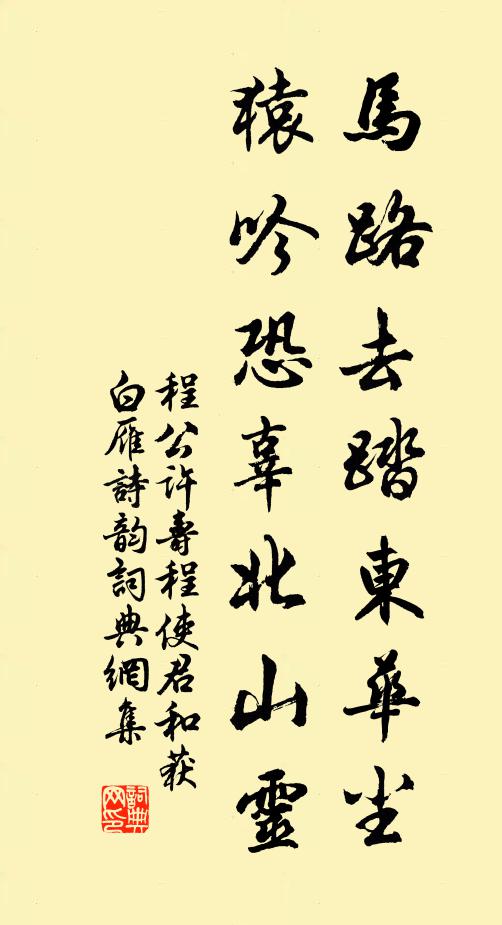 馬路去踏東華尘
猿吟恐辜北山靈
程公許壽程使君和获
白雁詩韵詞典網集
詞典網印